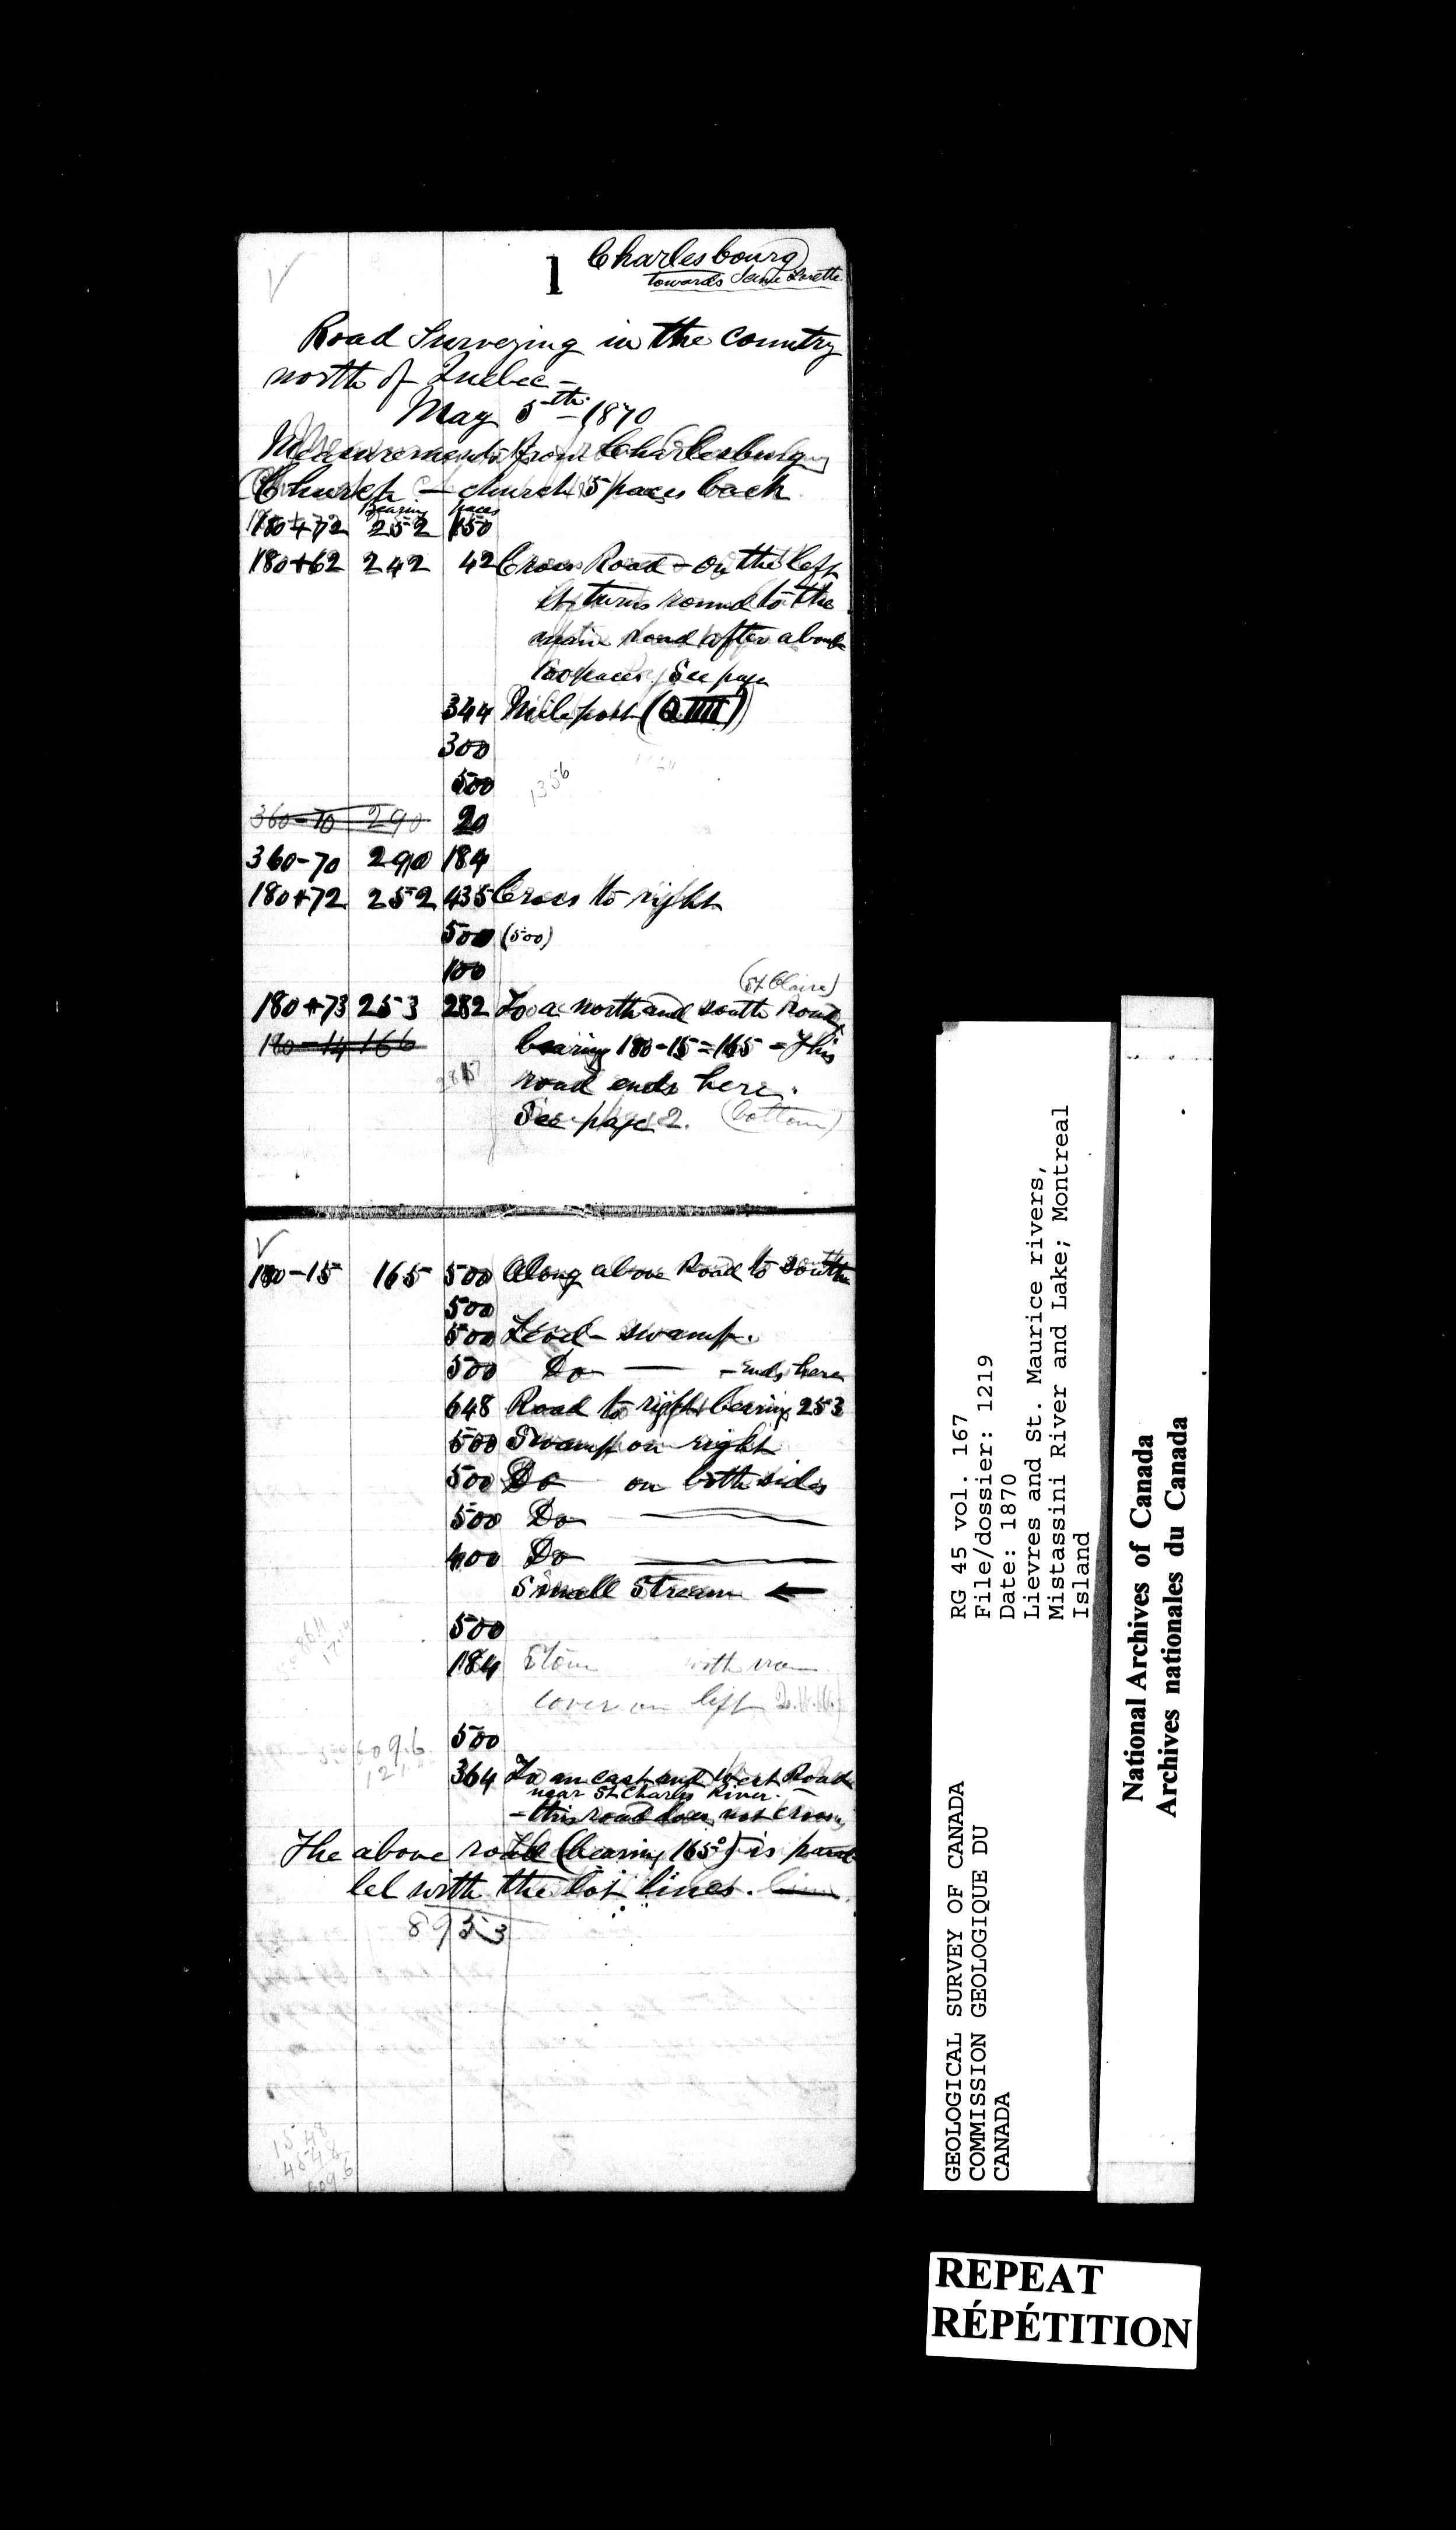 1
Charlesbourg
towards Jeune Lorette
Road Surveying in the country
north of Quebec -
May 5th 1870
Measurements from Charlesburg
Church - church 15 paces back
Bearing paces
180+72 252 150
180+62 242 42 Cross Road - on the left
it turns round to the
main road after about
100 paces. See page
344 Mile post (Q IIII)
300
500
1356
360-70 290 20
360-70 290 184
180+72 252 435 Cross to right
500 (500)
100
(St Claire)
180+73 253 282 To a north and south Road
180-14 166 bearing 180-15=165 - This
2857 road ends here.
See page 2. (bottom)
180-15 165 500 Along above Road to South
500
500 Level - swamp.
500 Do - ends here
648 Road to right bearing 253
500 Swamp on right
500 Do on both sides
500 Do
400 Do
Small Stream ←
500
184 Stone with
cover on left
6096 500
364 To an east and West Road
near St Charles River.
- this road does not cross
The above road (bearing 165°) is paral
lel with the lot lines.
8953
1548
4548
6096
GEOLOGICAL SURVEY OF CANADA
COMMISSION GEOLOGIQUE DU
CANADA
RG 45 vol. 167
File/dossier: 1219
Date: 1870
Lievres and St. Maurice rivers,
Mistassini River and Lake; Montreal
Island
National Archives of Canada
Archives nationales du Canada
REPEAT
RÉPÉTITION